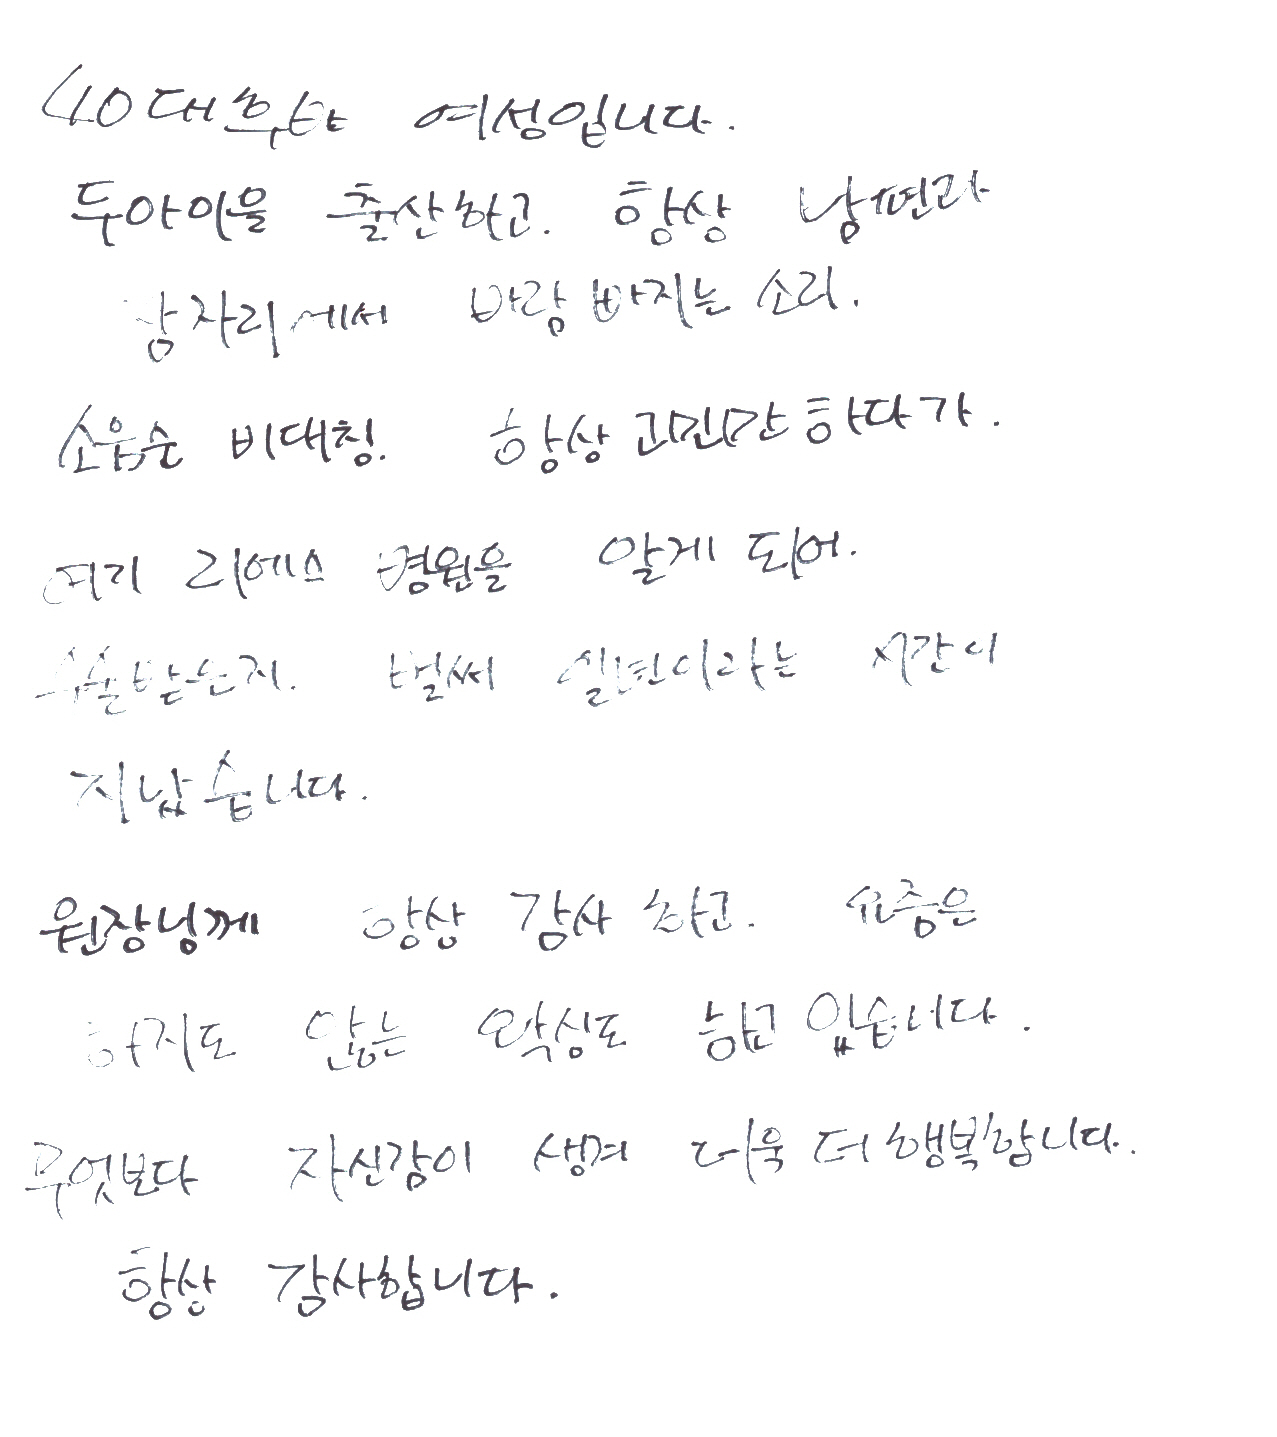 40대후반 여성입니다.
두아이을 출산하고. 항상 남편과
잠자리에서 바람 빠지는 소리.
소음순 비대칭. 항상 고민만 하다가.
여기 리에스 병원을 알게 되어.
수술받은지. 벌써 일년이라는 시간이
지났습니다.
원장님께 항상 감사 하고. 요즘은
하지도 않는 왁싱도 하고 있습니다.
무엇보다 자신감이 생겨 더욱 더 행복합니다.
항상 감사합니다.